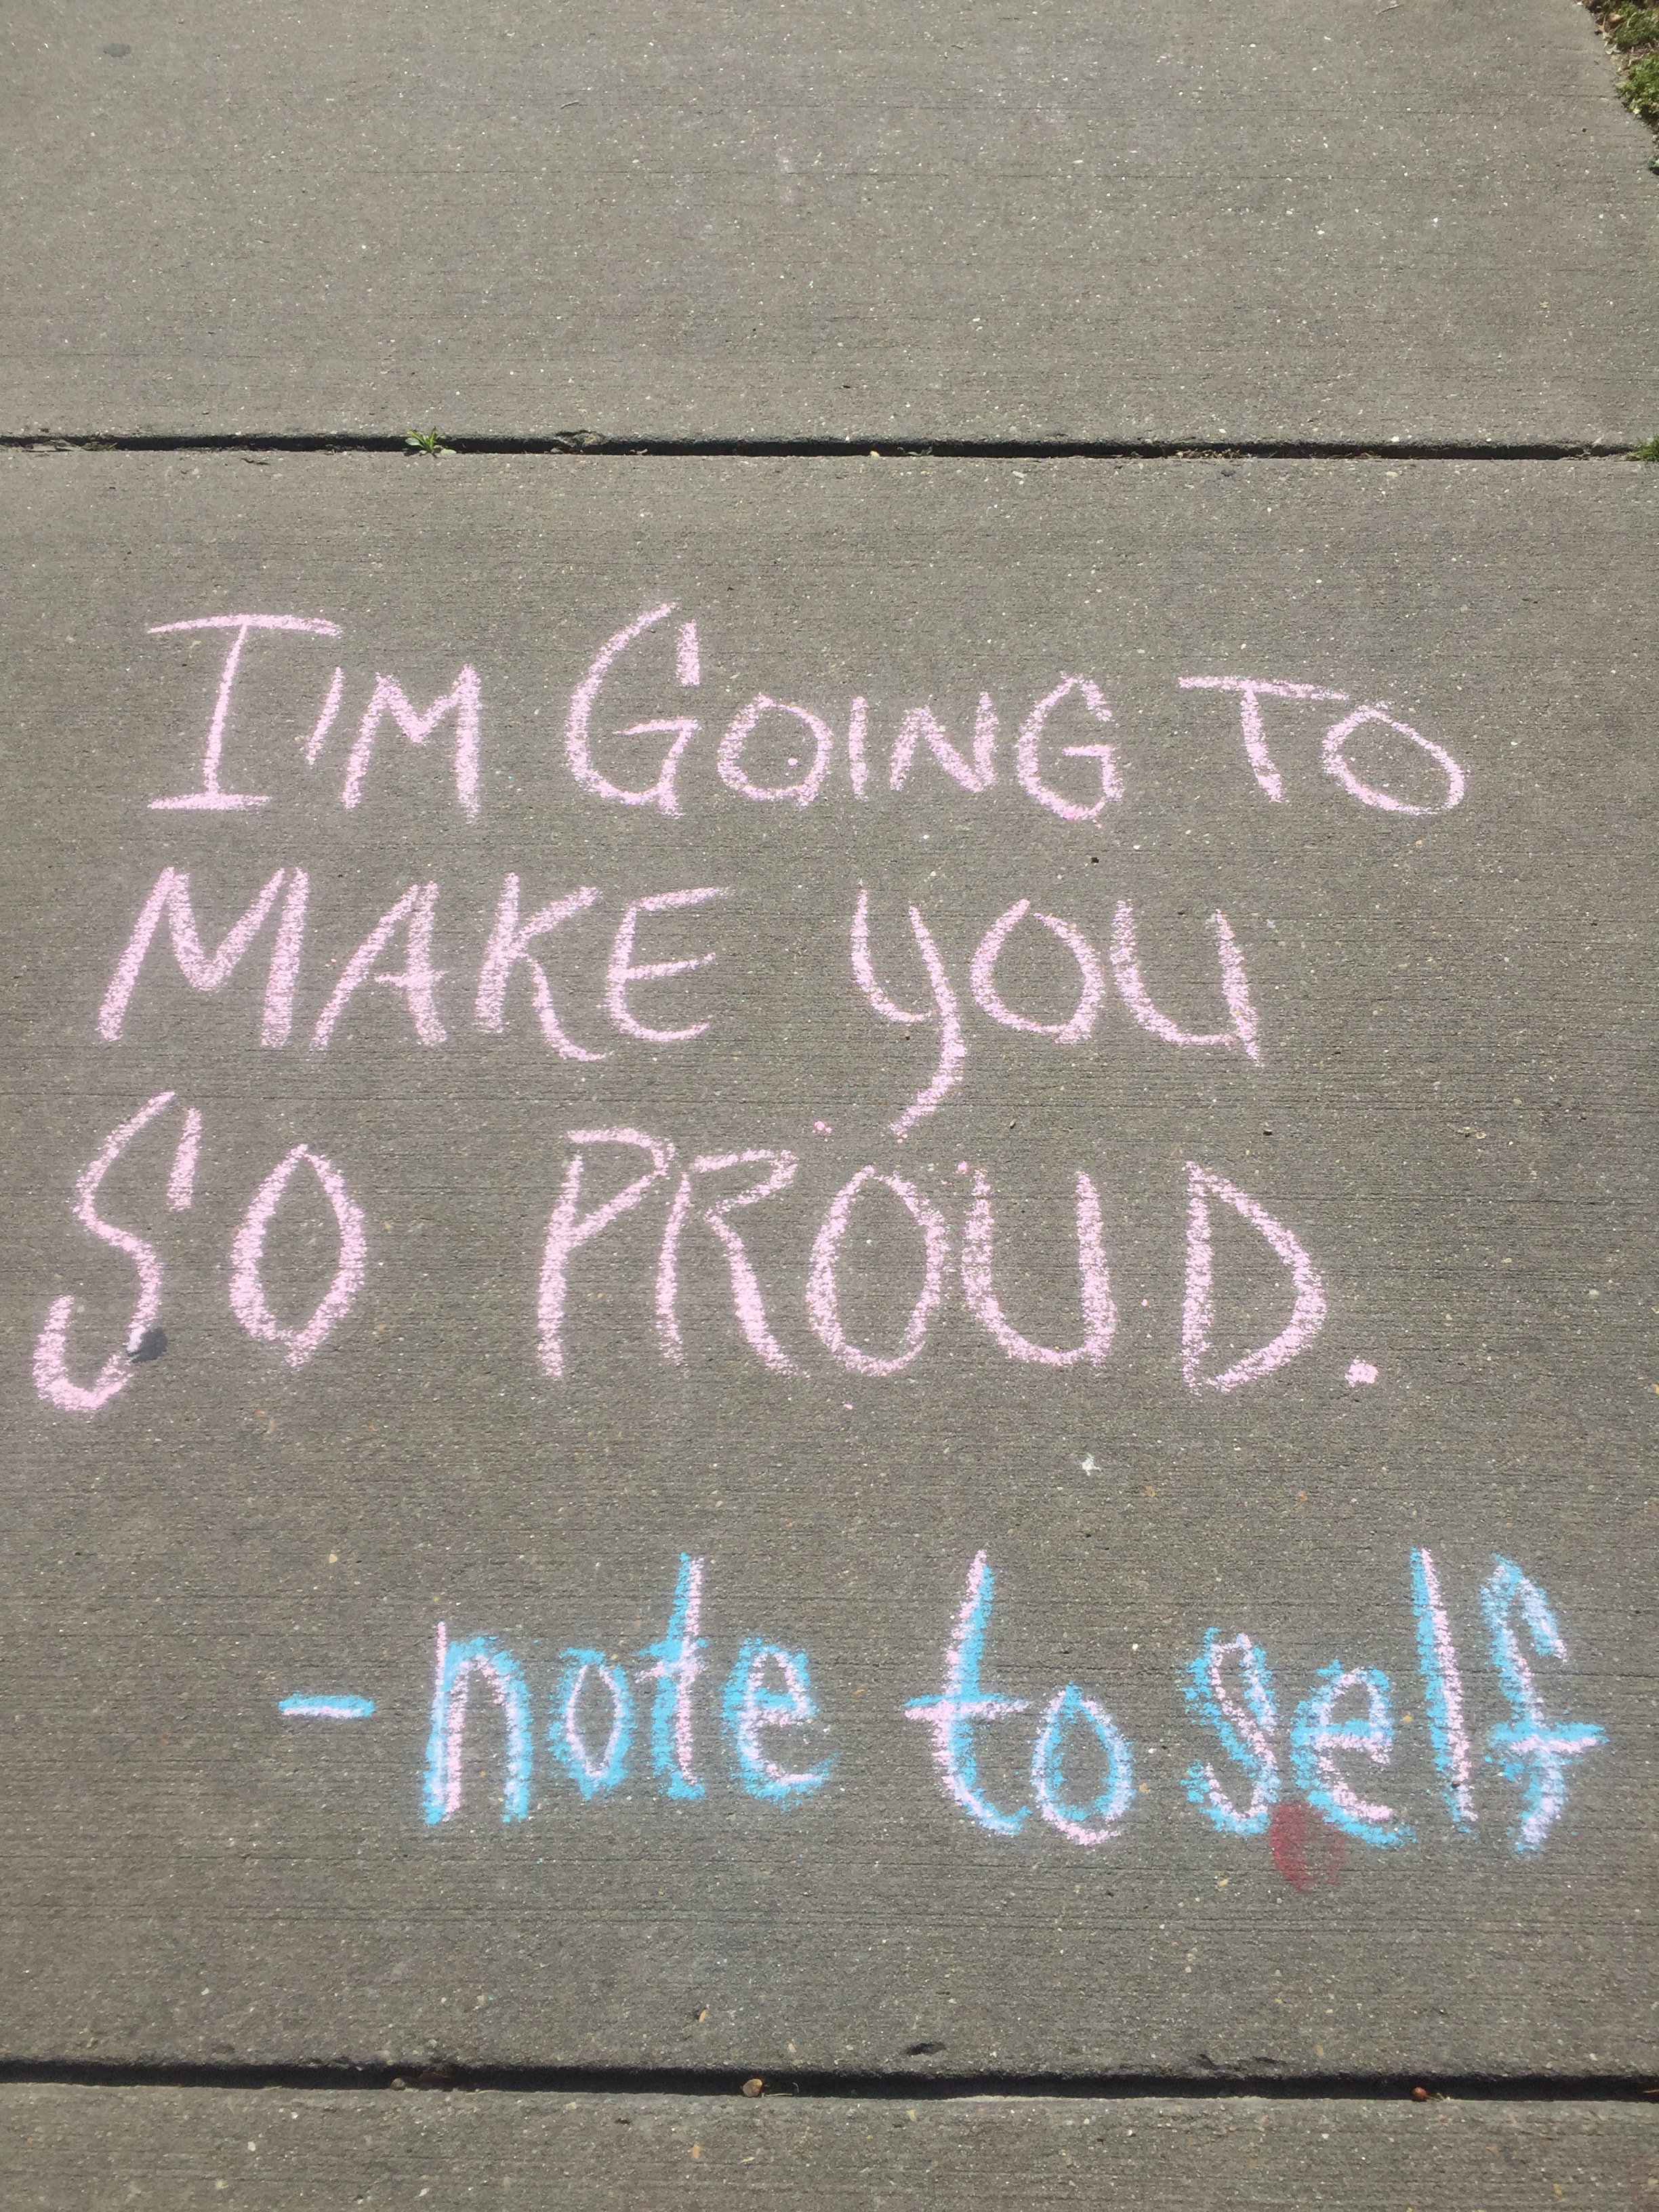 I'M GOING TO
MAKE YOU
SO PROUD.
-note to self